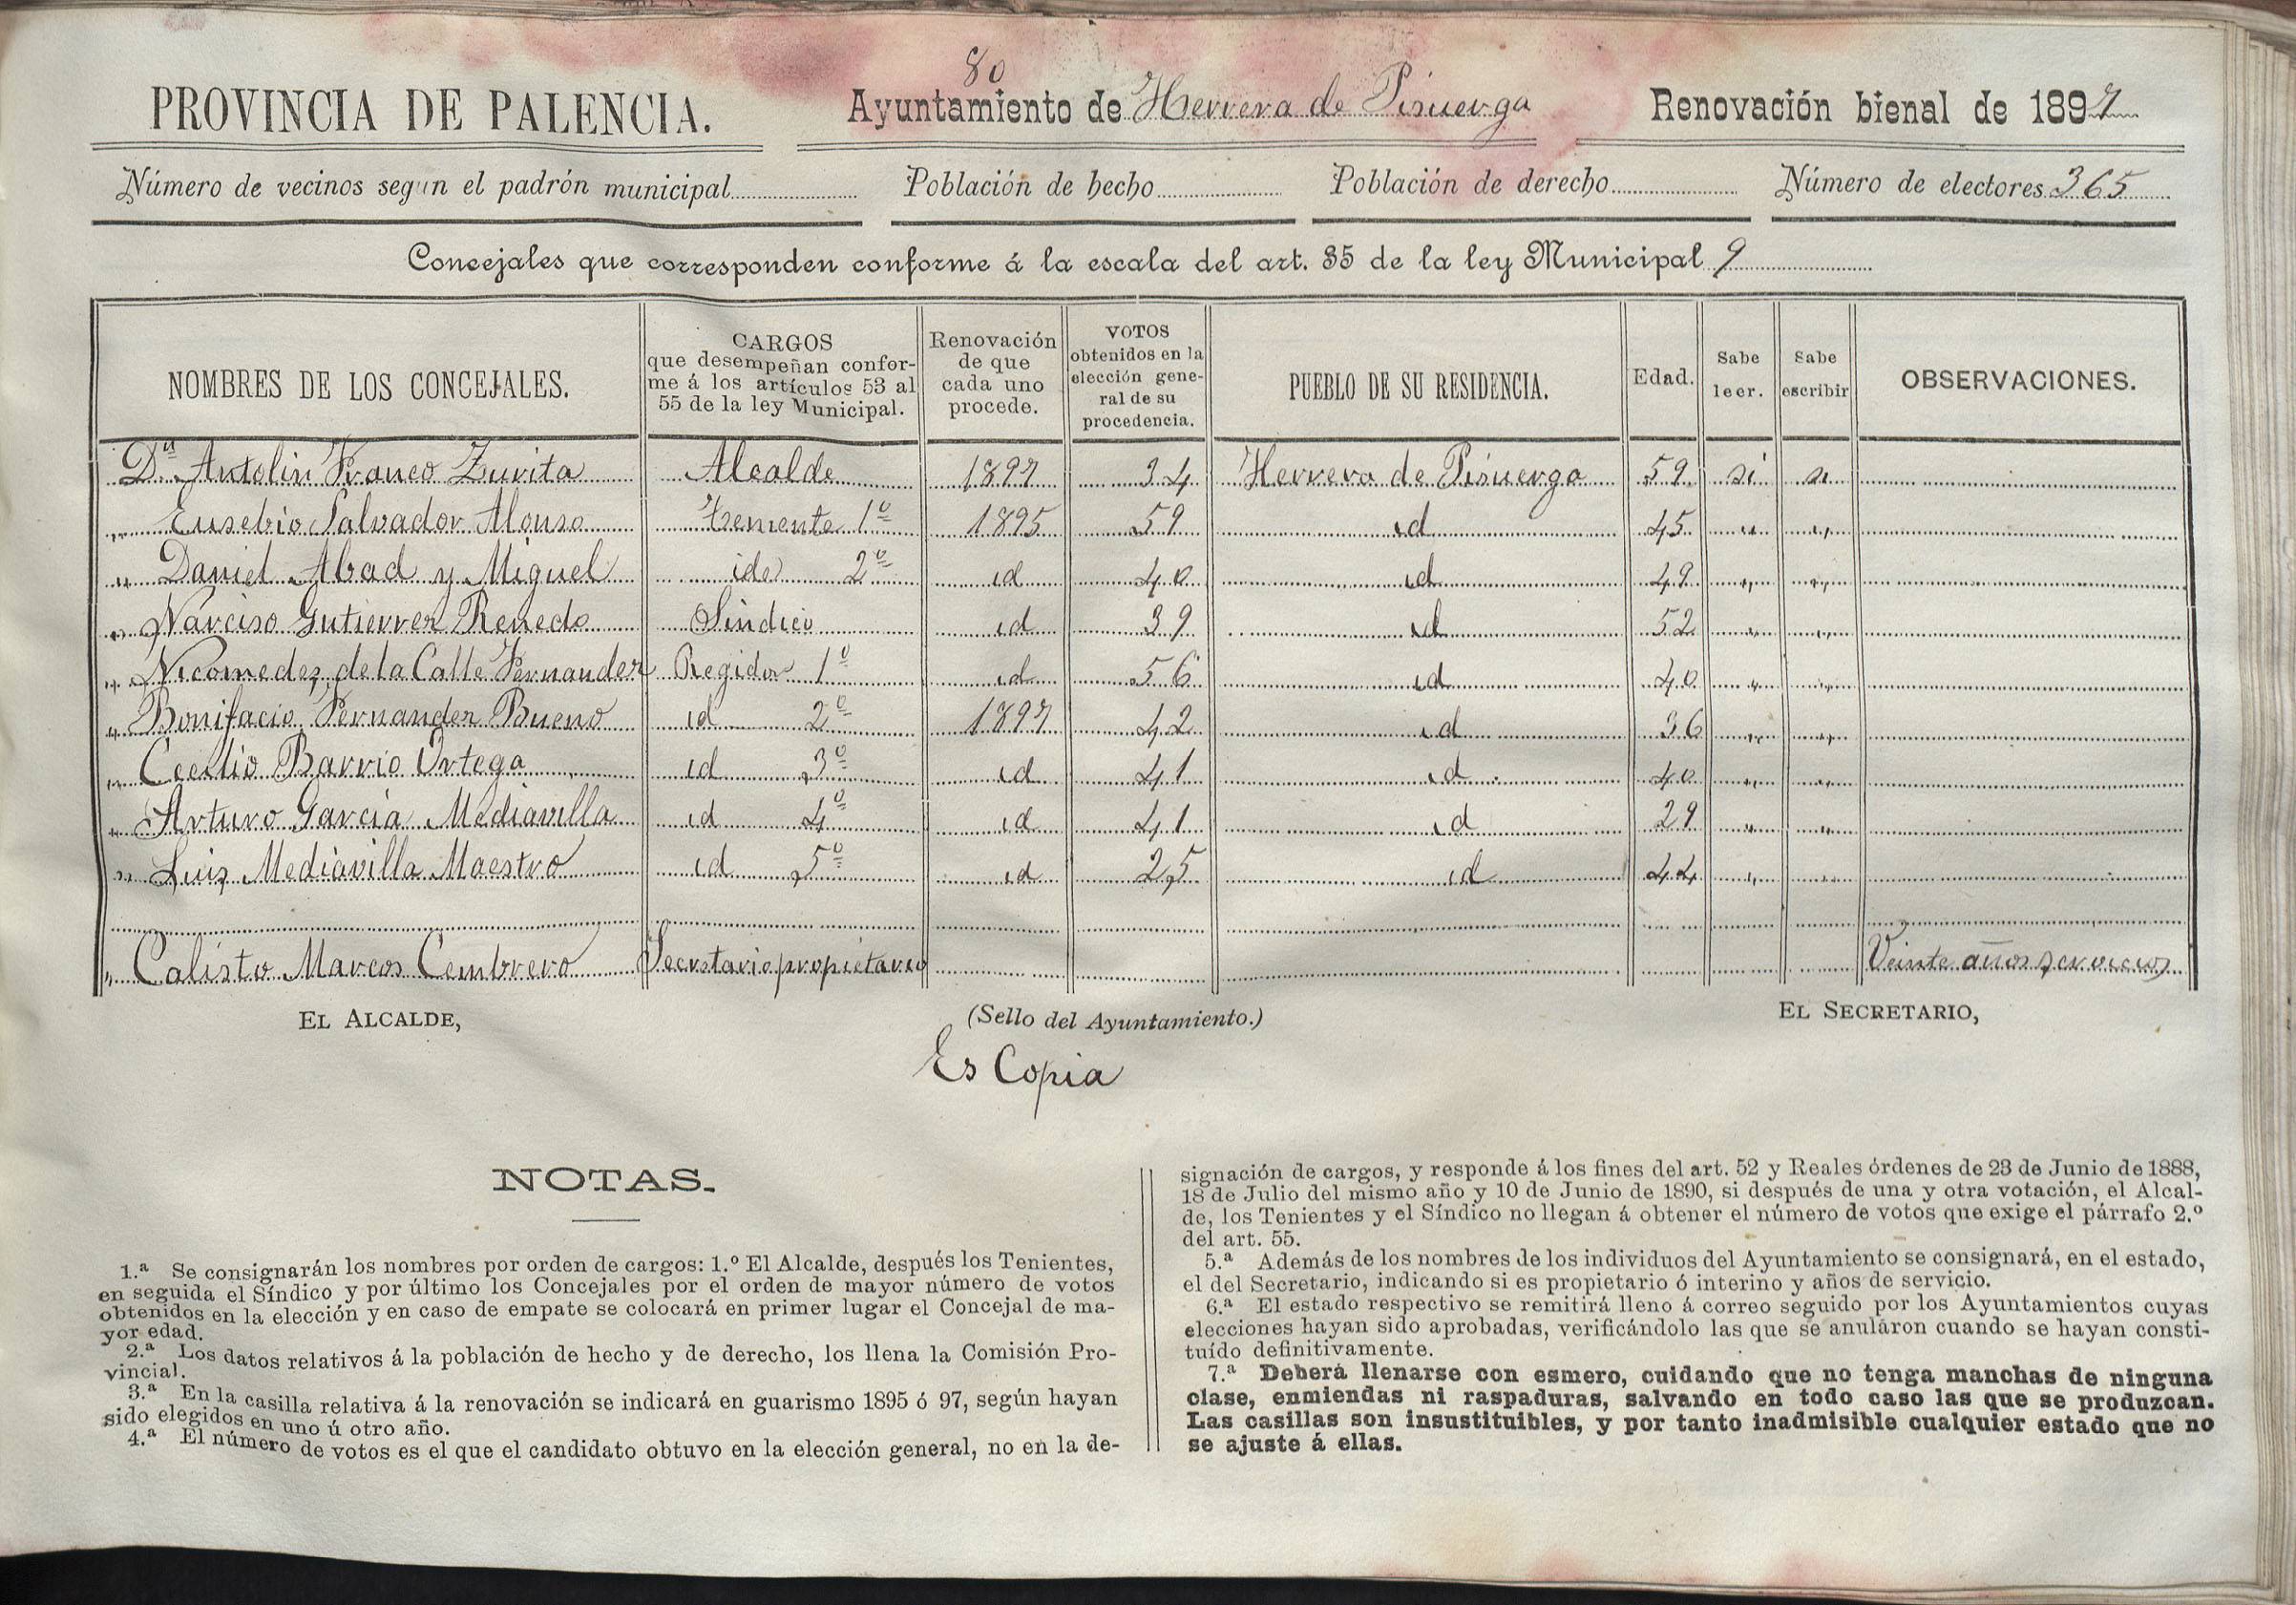 80
PROVINCIA DE PALENCIA. Ayuntamiento de Herrera de Pisuerga Renovación bienal de 1897
Número de vecinos segun el padrón municipal Población de hecho Población de derecho Número de electores 365
Concejales que corresponden conforme á la escala del art. 35 de la ley Municipal 9
NOMBRES DE LOS CONCEJALES. CARGOS que desempeñan conforme á los artículos 53 al 55 de la ley Municipal. Renovación de que cada uno procede. VOTOS obtenidos en la elección general de su procedencia. PUEBLO DE SU RESIDENCIA. Edad. Sabe leer. Sabe escribir OBSERVACIONES.
Dn Antolin Franco Zurita Alcalde 1897 34 Herrera de Pisuerga 59 si si
" Eusebio Salvador Alonso Teniente 1º 1895 59 id 45 " "
" Daniel Abad y Miguel id 2º id 40 id 49 " "
" Narciso Gutierrez Renedo Sindico id 39 id 52 " "
" Nicomedes de la Calle Fernandez Regidor 1º id 56 id 40 " "
" Bonifacio Fernandez Bueno id 2º 1897 42 id 36 " "
" Cecilio Barrio Ortega id 3º id 41 id 40 " "
" Arturo García Mediavilla id 4º id 41 id 29 " "
" Luis Mediavilla Maestro id 5º id 25 id 44 " "
" Calisto Marcos Cembrero Secretario propietario Veinte años servicios
EL ALCALDE, (Sello del Ayuntamiento.) EL SECRETARIO,
Es Copia
NOTAS.
1.ª Se consignarán los nombres por orden de cargos: 1.º El Alcalde, después los Tenientes,
en seguida el Síndico y por último los Concejales por el orden de mayor número de votos
obtenidos en la elección y en caso de empate se colocará en primer lugar el Concejal de ma-
yor edad.
2.ª Los datos relativos á la población de hecho y de derecho, los llena la Comisión Pro-
vincial.
3.ª En la casilla relativa á la renovación se indicará en guarismo 1895 ó 97, según hayan
sido elegidos en uno ú otro año.
4.ª El número de votos es el que el candidato obtuvo en la elección general, no en la de-
signación de cargos, y responde á los fines del art. 52 y Reales órdenes de 23 de Junio de 1888,
18 de Julio del mismo año y 10 de Junio de 1890, si después de una y otra votación, el Alcal-
de, los Tenientes y el Síndico no llegan á obtener el número de votos que exige el párrafo 2.º
del art. 55.
5.ª Además de los nombres de los individuos del Ayuntamiento se consignará, en el estado,
el del Secretario, indicando si es propietario ó interino y años de servicio.
6.ª El estado respectivo se remitirá lleno á correo seguido por los Ayuntamientos cuyas
elecciones hayan sido aprobadas, verificándolo las que se anularon cuando se hayan consti-
tuído definitivamente.
7.ª Deberá llenarse con esmero, cuidando que no tenga manchas de ninguna
clase, enmiendas ni raspaduras, salvando en todo caso las que se produzcan.
Las casillas son insustituibles, y por tanto inadmisible cualquier estado que no
se ajuste á ellas.